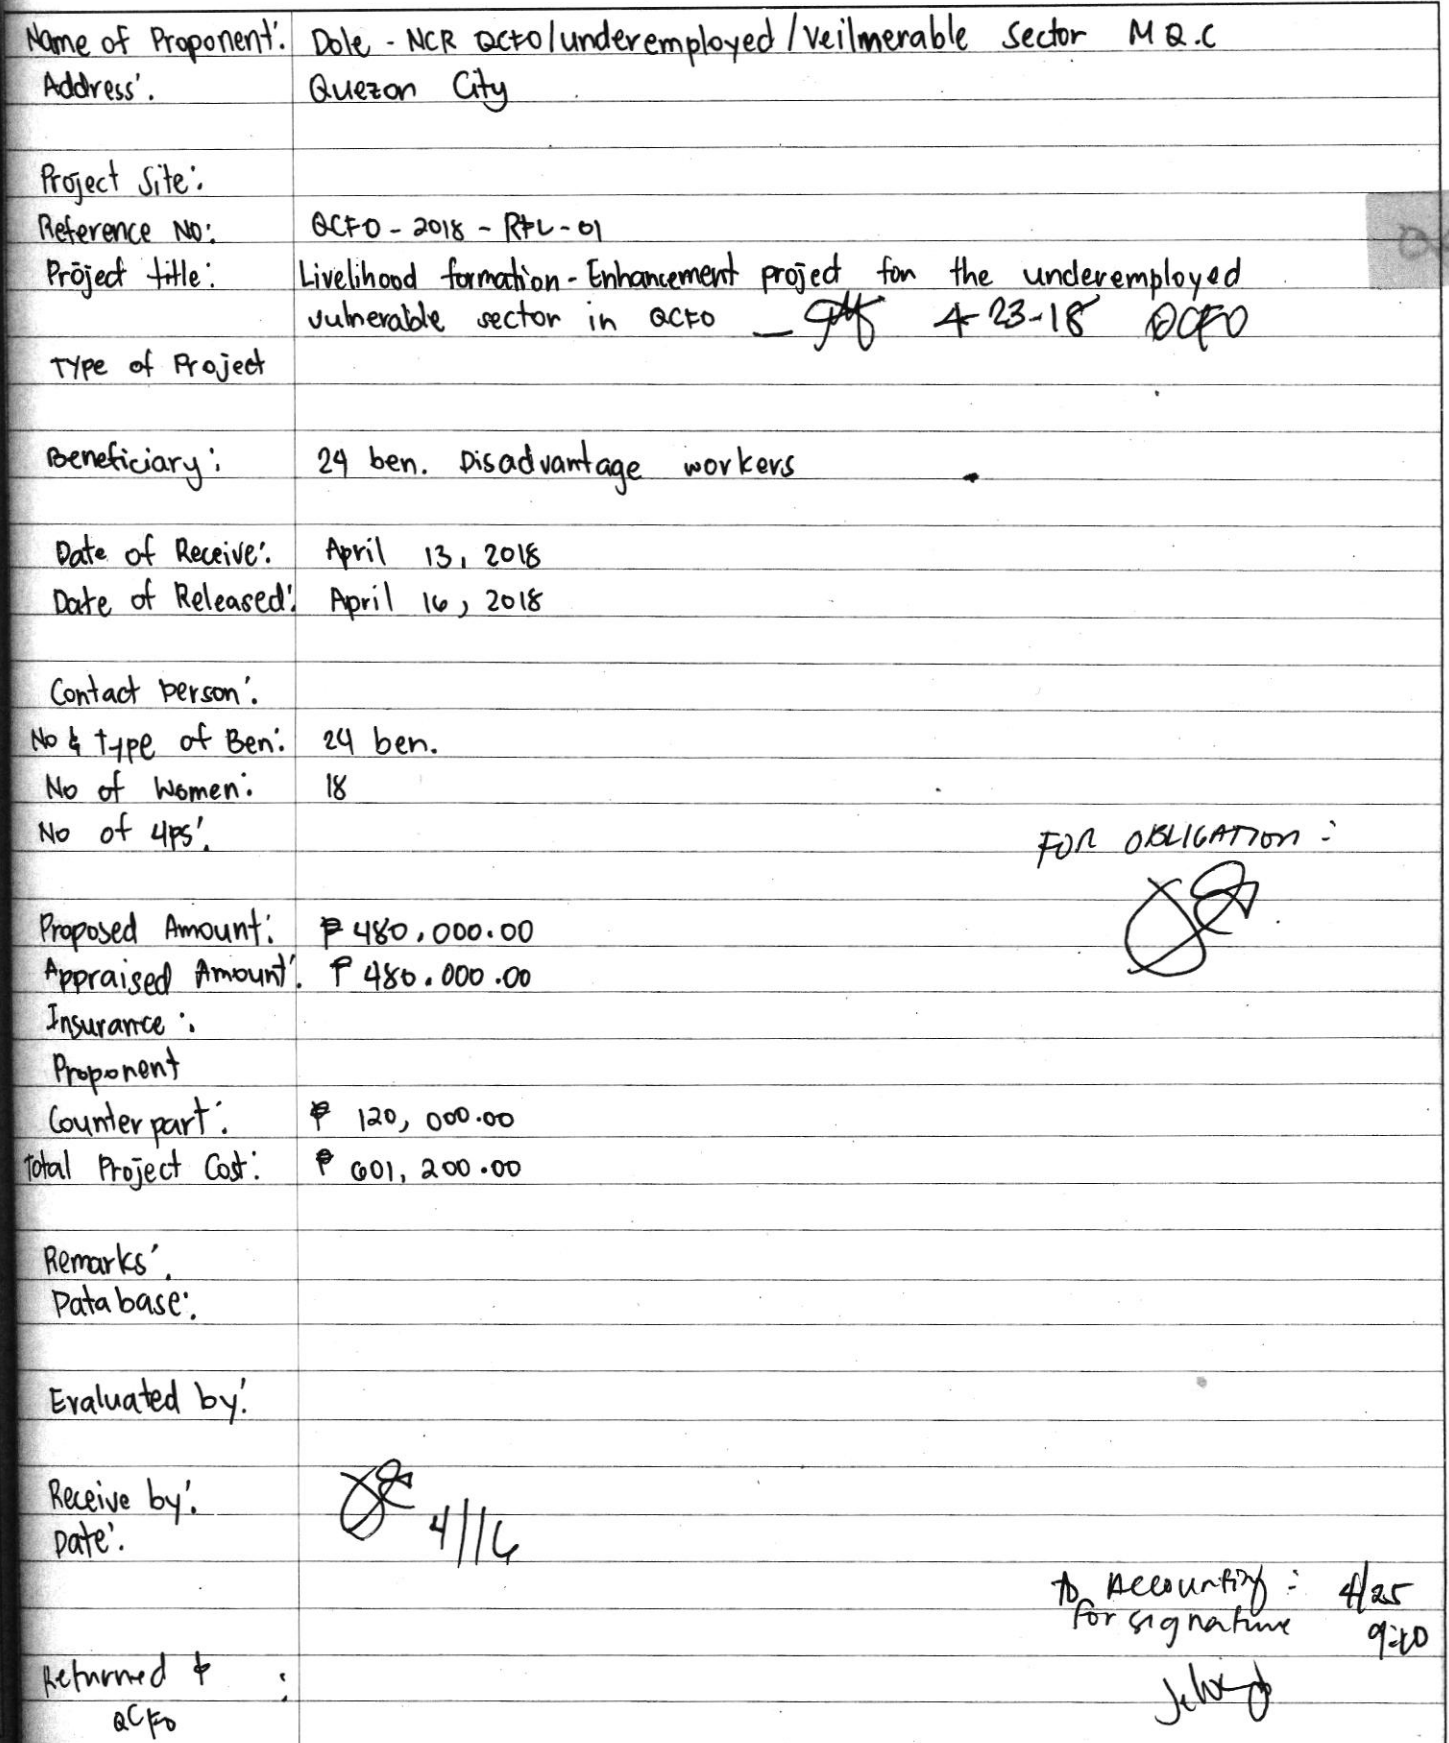 Name of Proponent: Dole - NCR QCFO/underemployed/veilmerable Sector M Q.C
Address: Quezon City
Project Site:
Reference No: QCFO - 2018 - RFL - 01
Project title: Livelihood formation - Enhancement project for the underemployed
vulnerable sector in QCFO 4-23-18 QCFO
Type of Project
Beneficiary: 24 ben. Disadvantage workers
Date of Receive: April 13, 2018
Date of Released: April 16, 2018
Contact person:
No & type of Ben: 24 ben.
No of Women: 18
No of 4ps:
FOR OBLIGATION:
Proposed Amount: ₱ 480,000.00
Appraised Amount: ₱ 480.000.00
Insurance:
Proponent
Counterpart: ₱ 120,000.00
Total Project Cost: ₱ 601,200.00
Remarks:
Database:
Evaluated by:
Receive by:
Date: 4/16
to Accounting: 4/25
for signature
Returned to :
QCFO